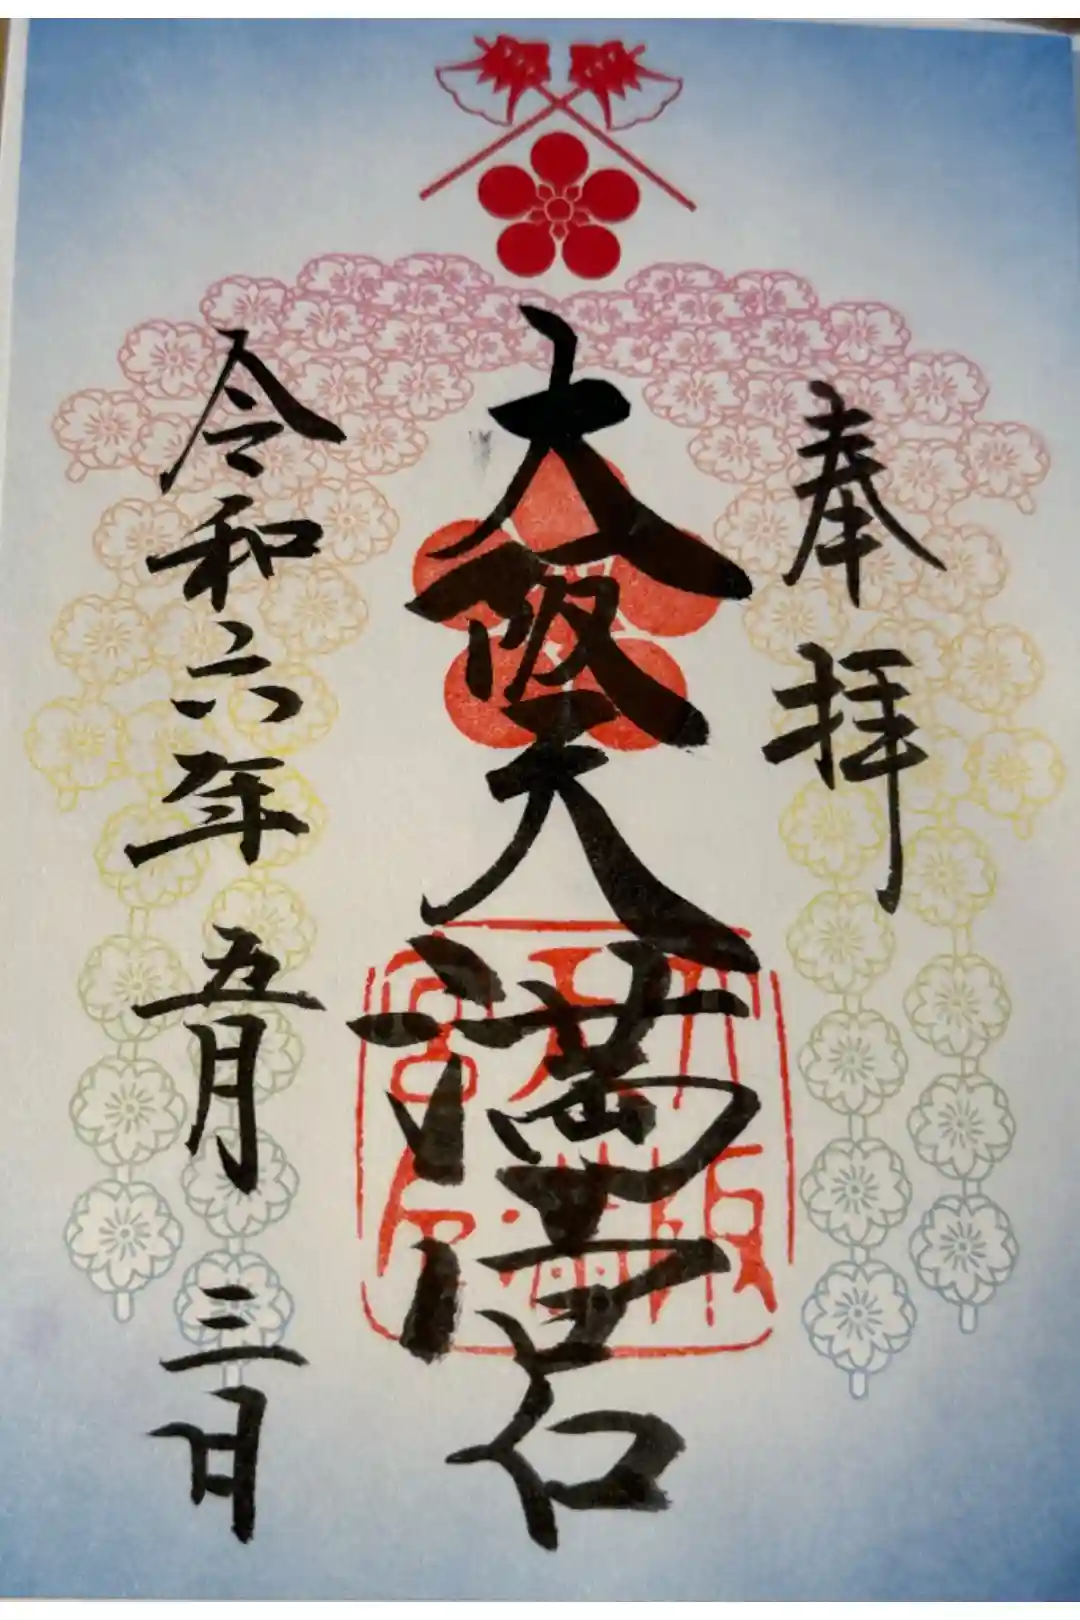 奉拝
大阪天満宮
令和六年五月三日